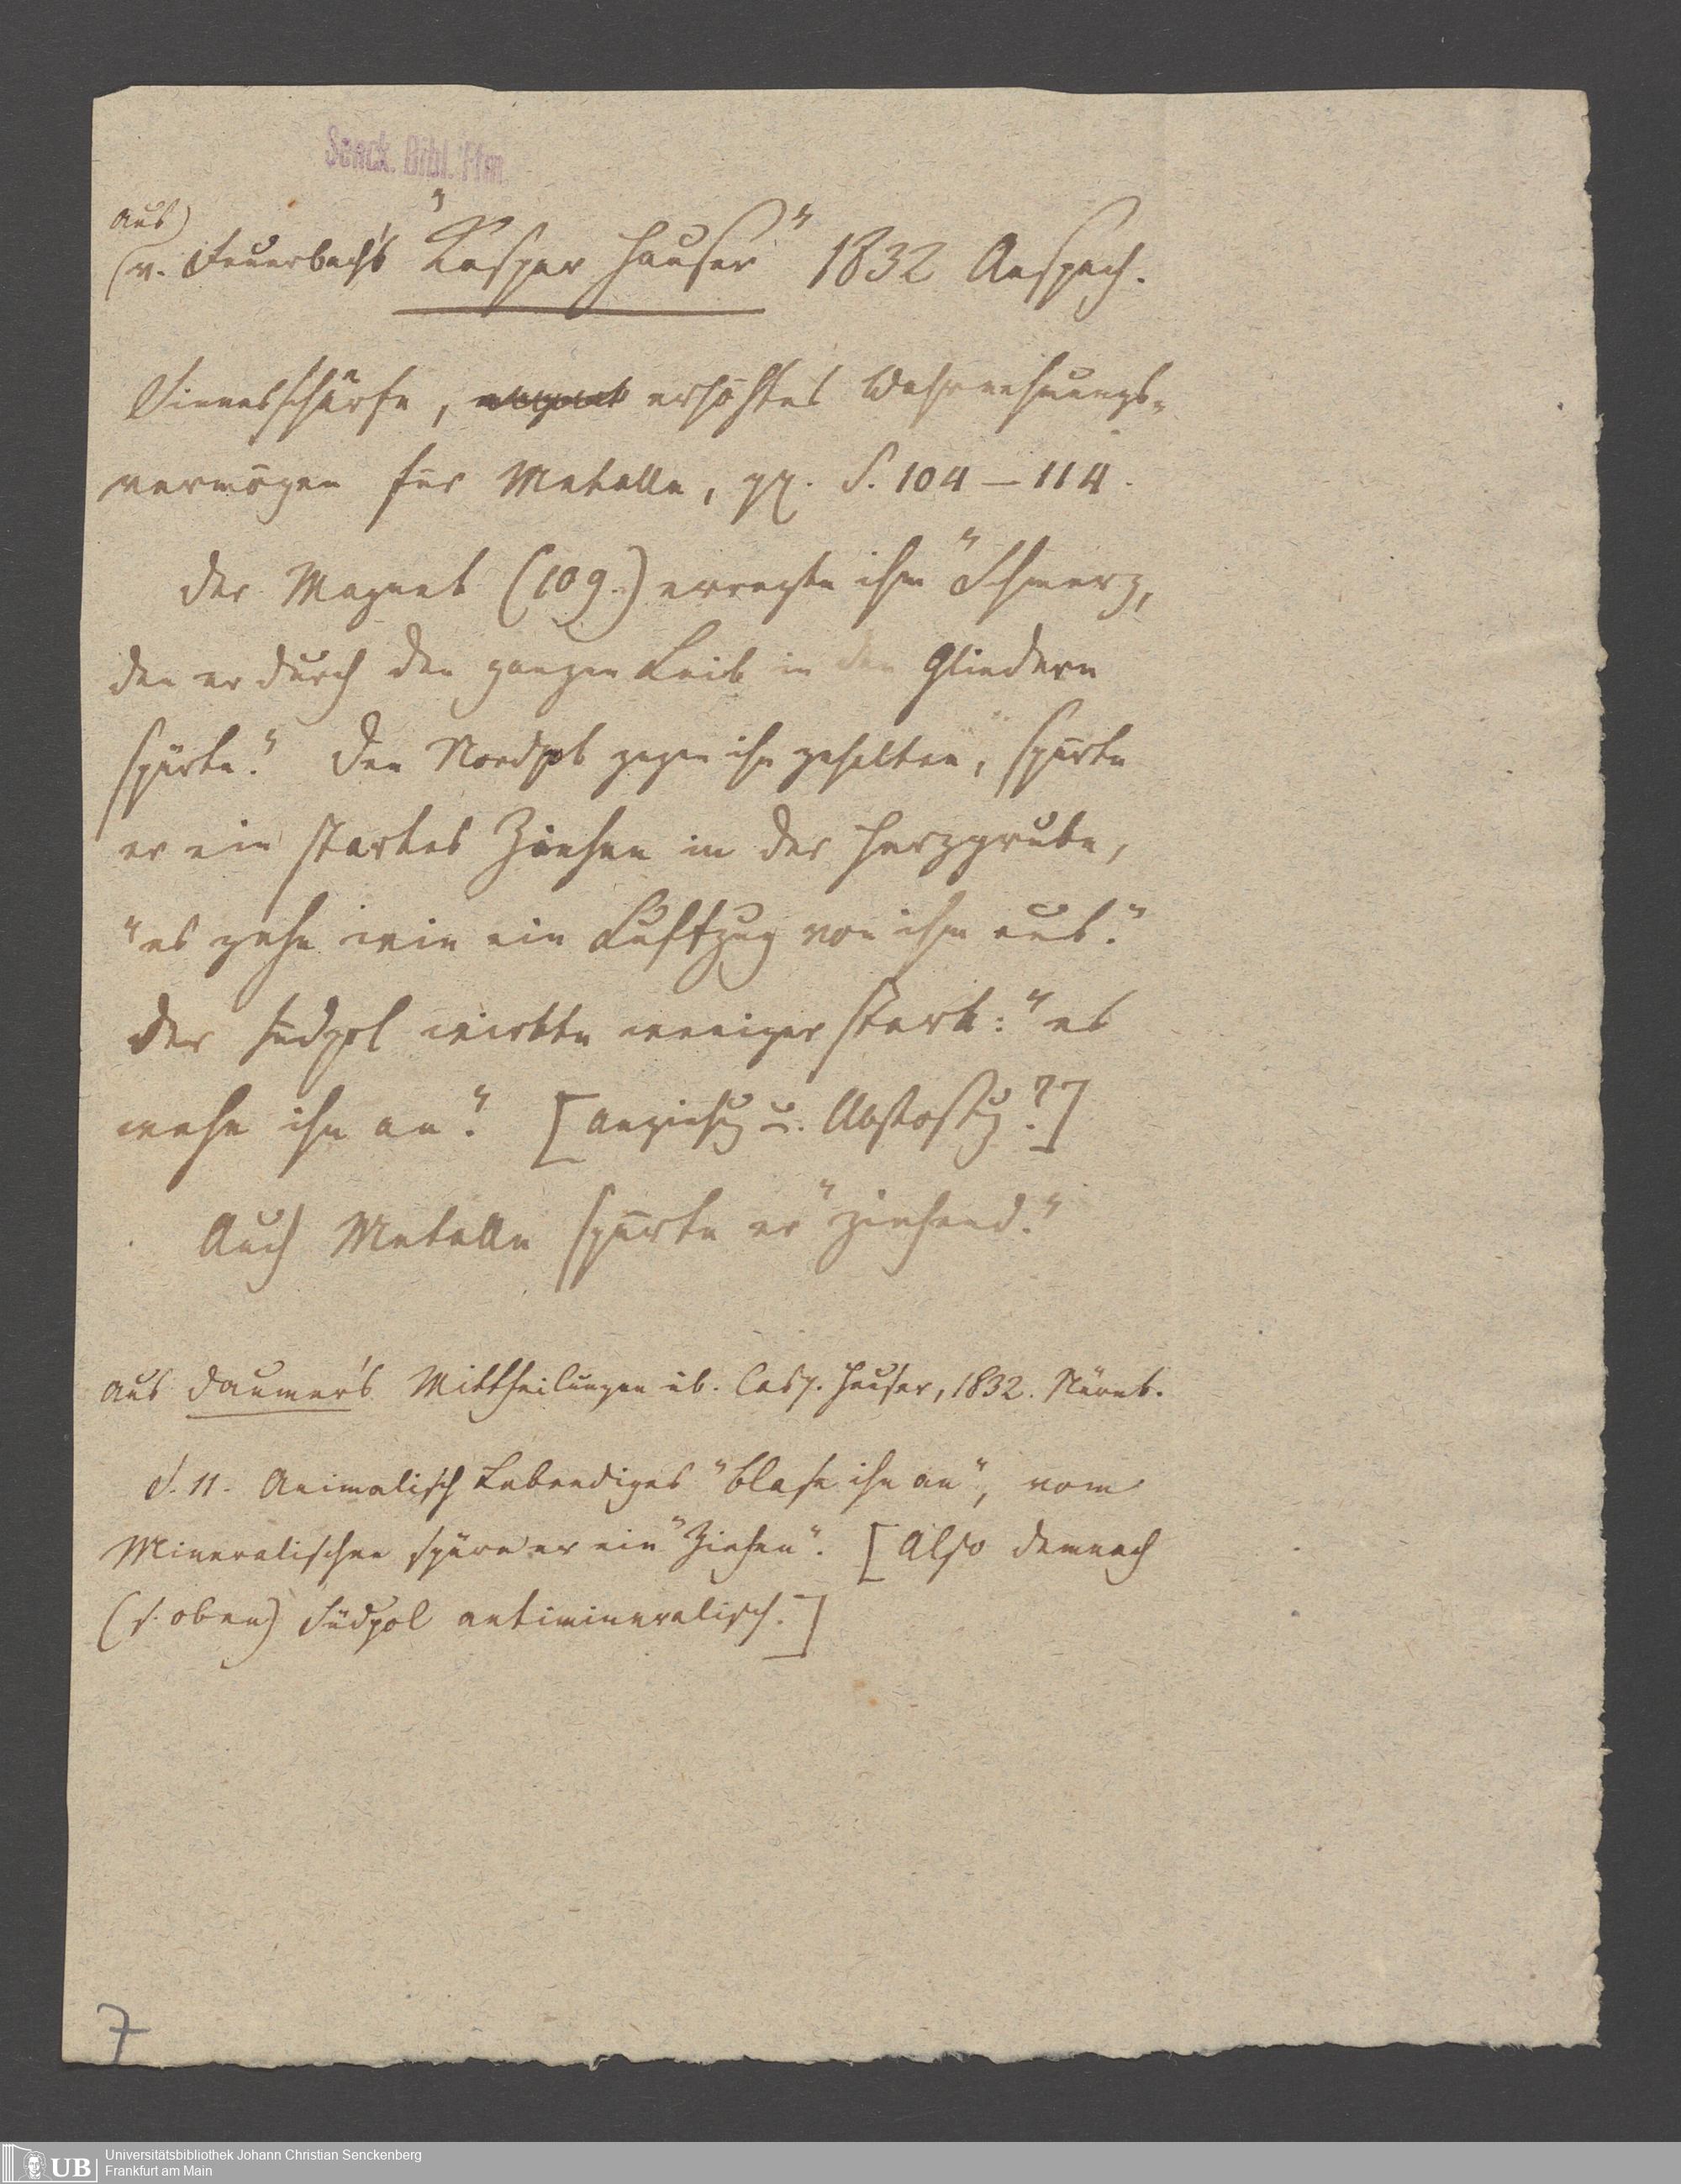 Senck. Bibl. Ffm
aus
(v. Feuerbach's "Kaspar Hauser" 1832 Anspach.
Sinnesschärfe, erhöhtes Wahrnehmungs-
vermögen für Metalle, pp. S. 104 – 114.
Der Magnet (109.) erregte ihm "Schmerz,
den er durch den ganzen Leib in den Gliedern
spürte." Den Nordpol gegen ihn gehalten, spürte
er ein starkes Ziehen in der Herzgrube,
"es gehe wie ein Luftzug von ihm aus."
Der Südpol wirkte weniger stark: "es
wehe ihn an." [Anziehg u. Abstoßg?]
Auch Metalle spürte er "ziehend."
Aus Daumer's Mittheilungen üb. Casp. Hauser, 1832. Nürnb.
S. 11. Animalisch Lebendiges "blase ihn an", vom
Mineralischen spüre er ein "Ziehen". [Also demnach
(s. oben) Südpol antimineralisch.]
7
UB
Universitätsbibliothek Johann Christian Senckenberg
Frankfurt am Main